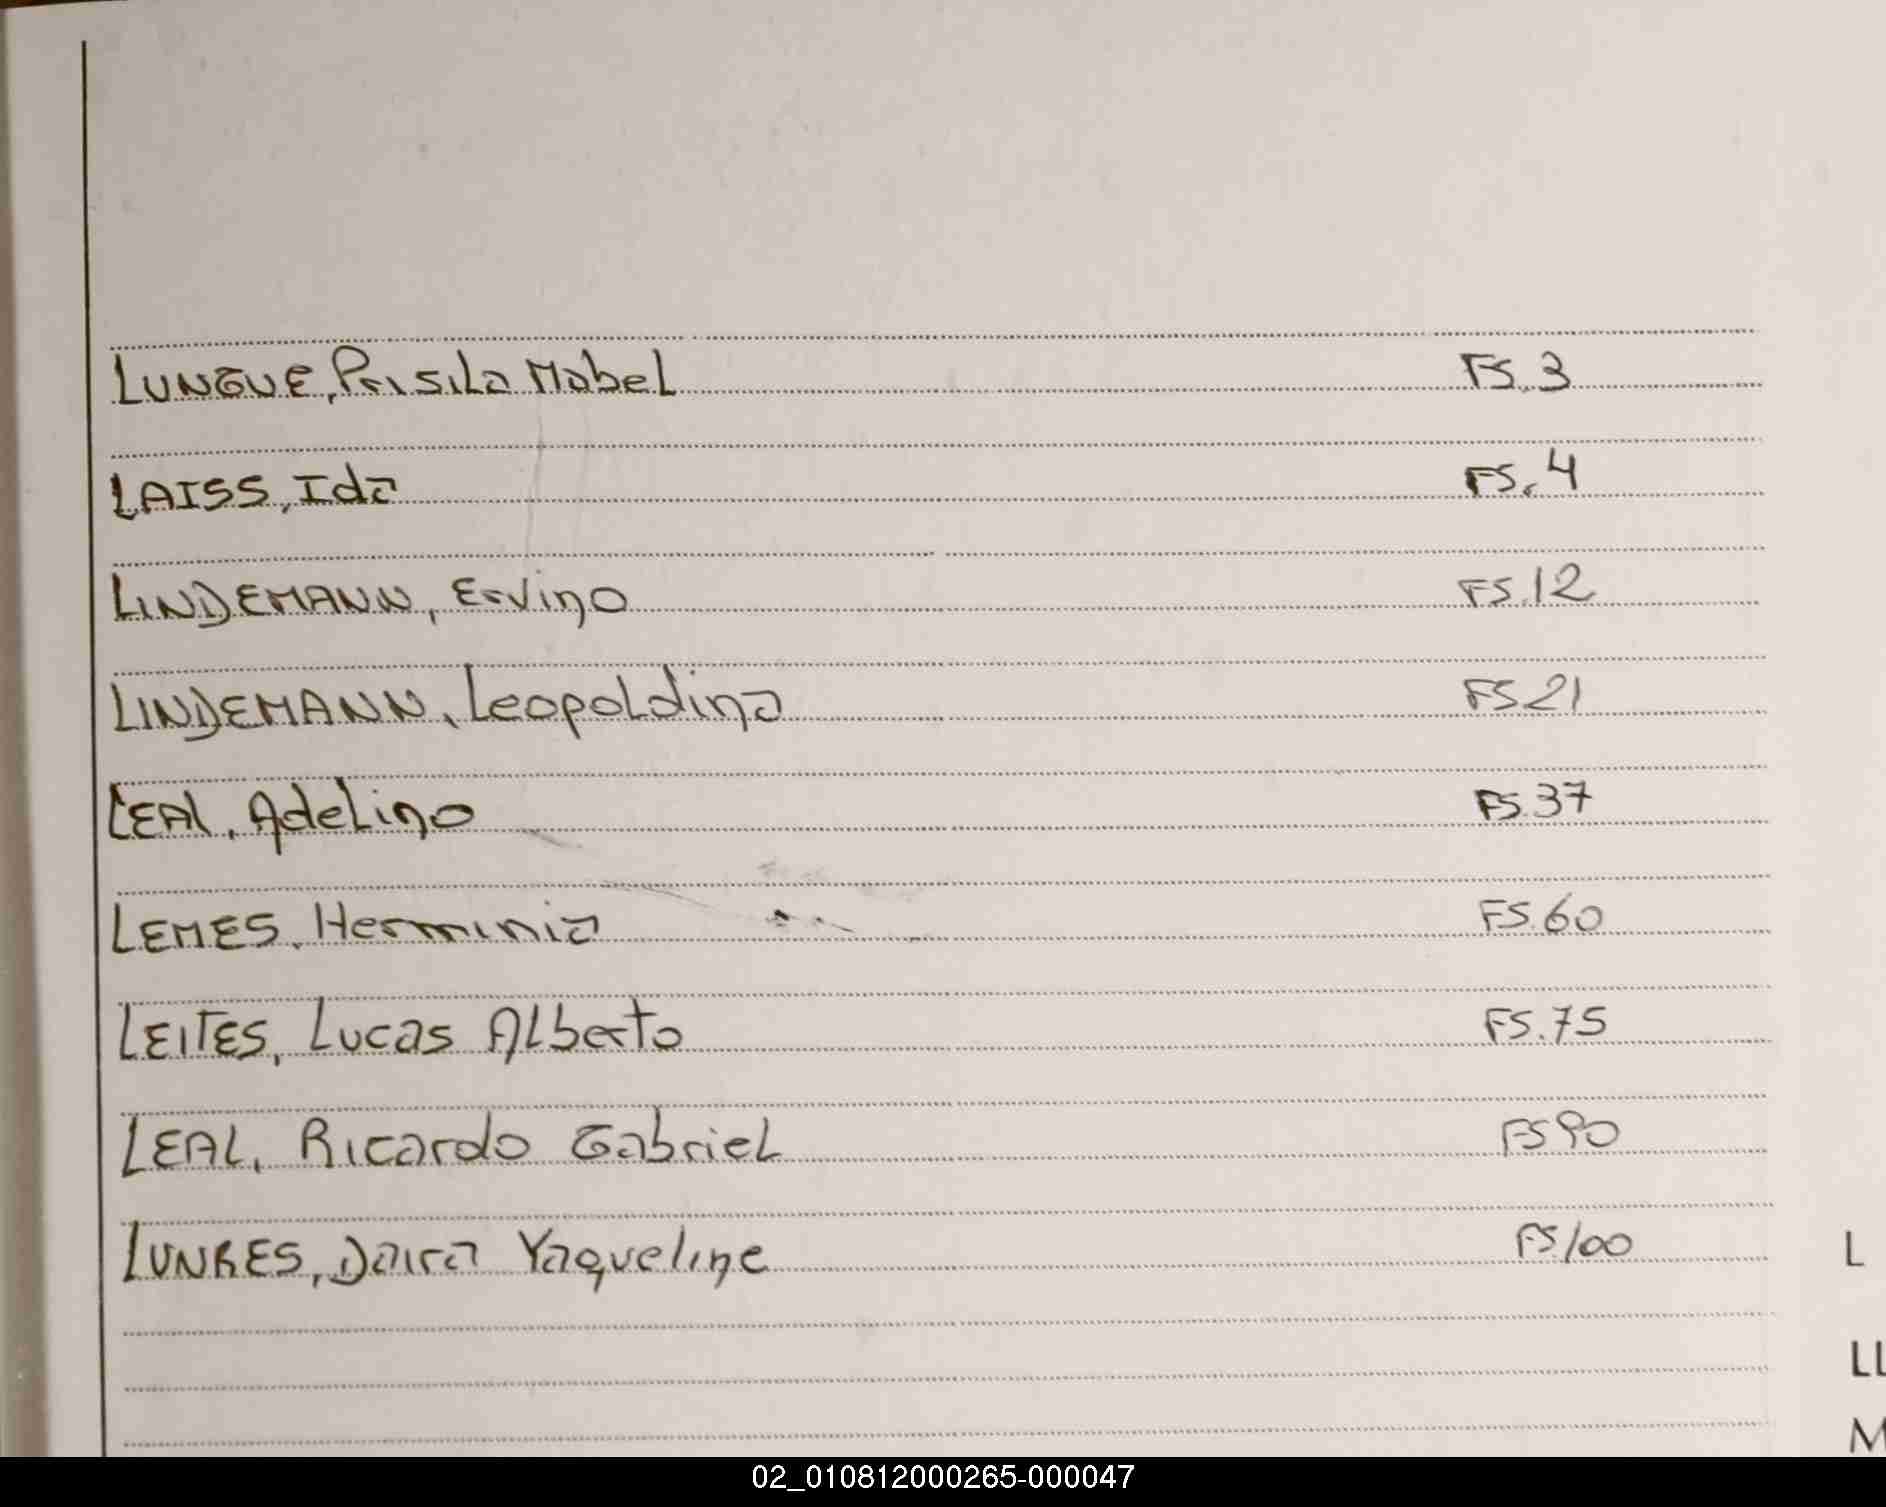 LUNGUE, Prisila Mabel FS. 3
LAISS, Ida FS. 4
LINDEMANN, Ervino FS. 12
LINDEMANN, Leopoldina FS 21
LEAL, Adelino FS. 37
LEMES, Herminia FS. 60
LEITES, Lucas Alberto FS. 75
LEAL, Ricardo Gabriel FS 90
LUNRES, Daira Yaqueline FS. 100
L
LL
M
02_010812000265-000047